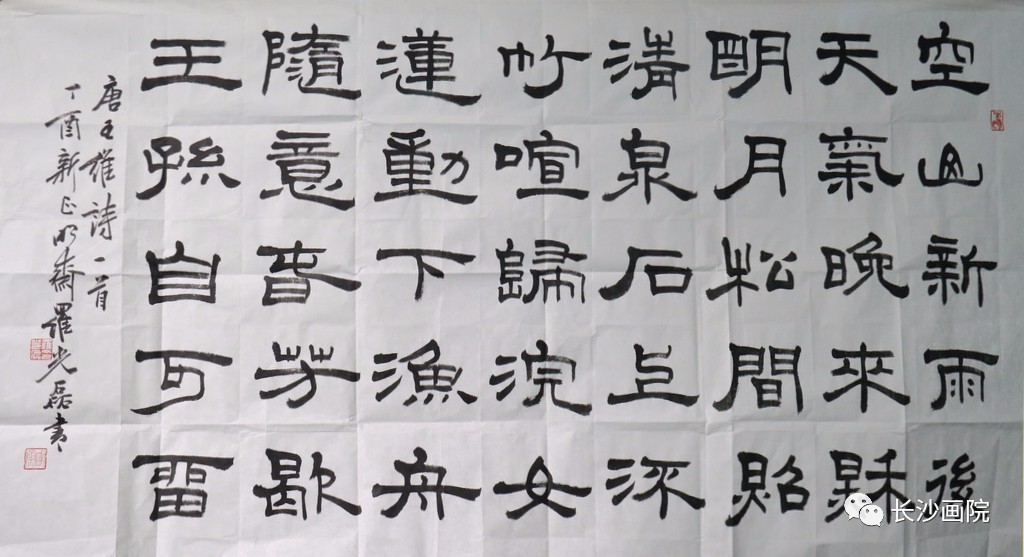 空山新雨後
天氣晚來秋
明月松間照
清泉石上流
竹喧歸浣女
蓮動下漁舟
隨意春芳歇
王孫自可留
唐王維詩一首
丁酉新正明齋羅光磊書
长沙画院